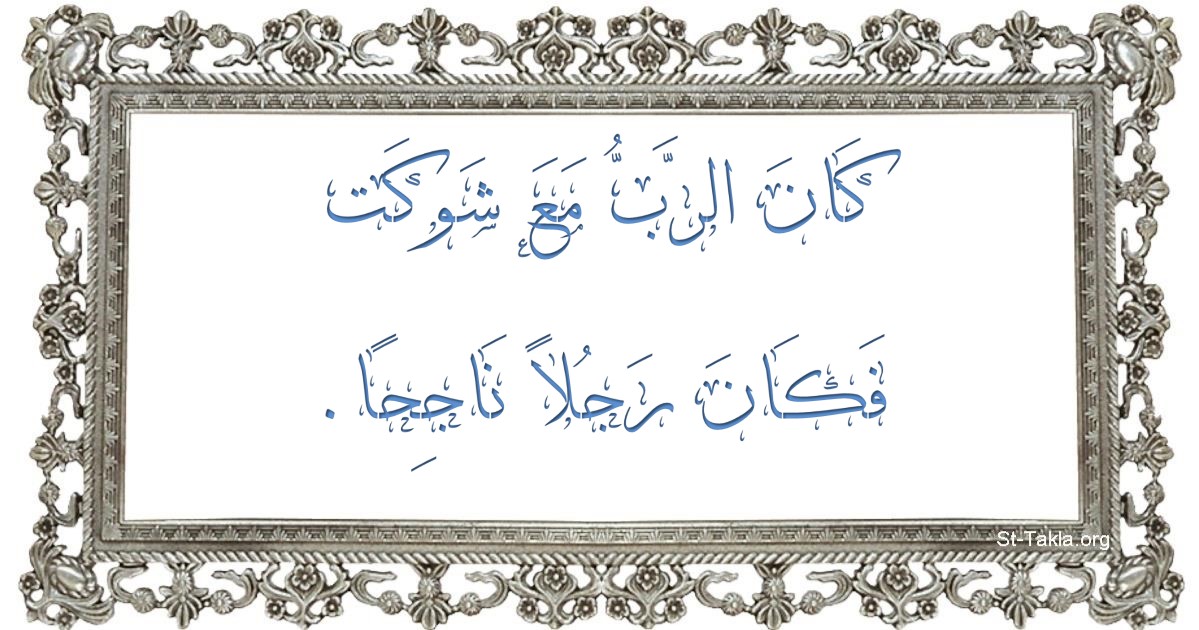 كَانَ الرَّبُّ مَعَ شَوكَت
فَكَانَ رَجُلاً نَاجِحًا .
St-Takla.org